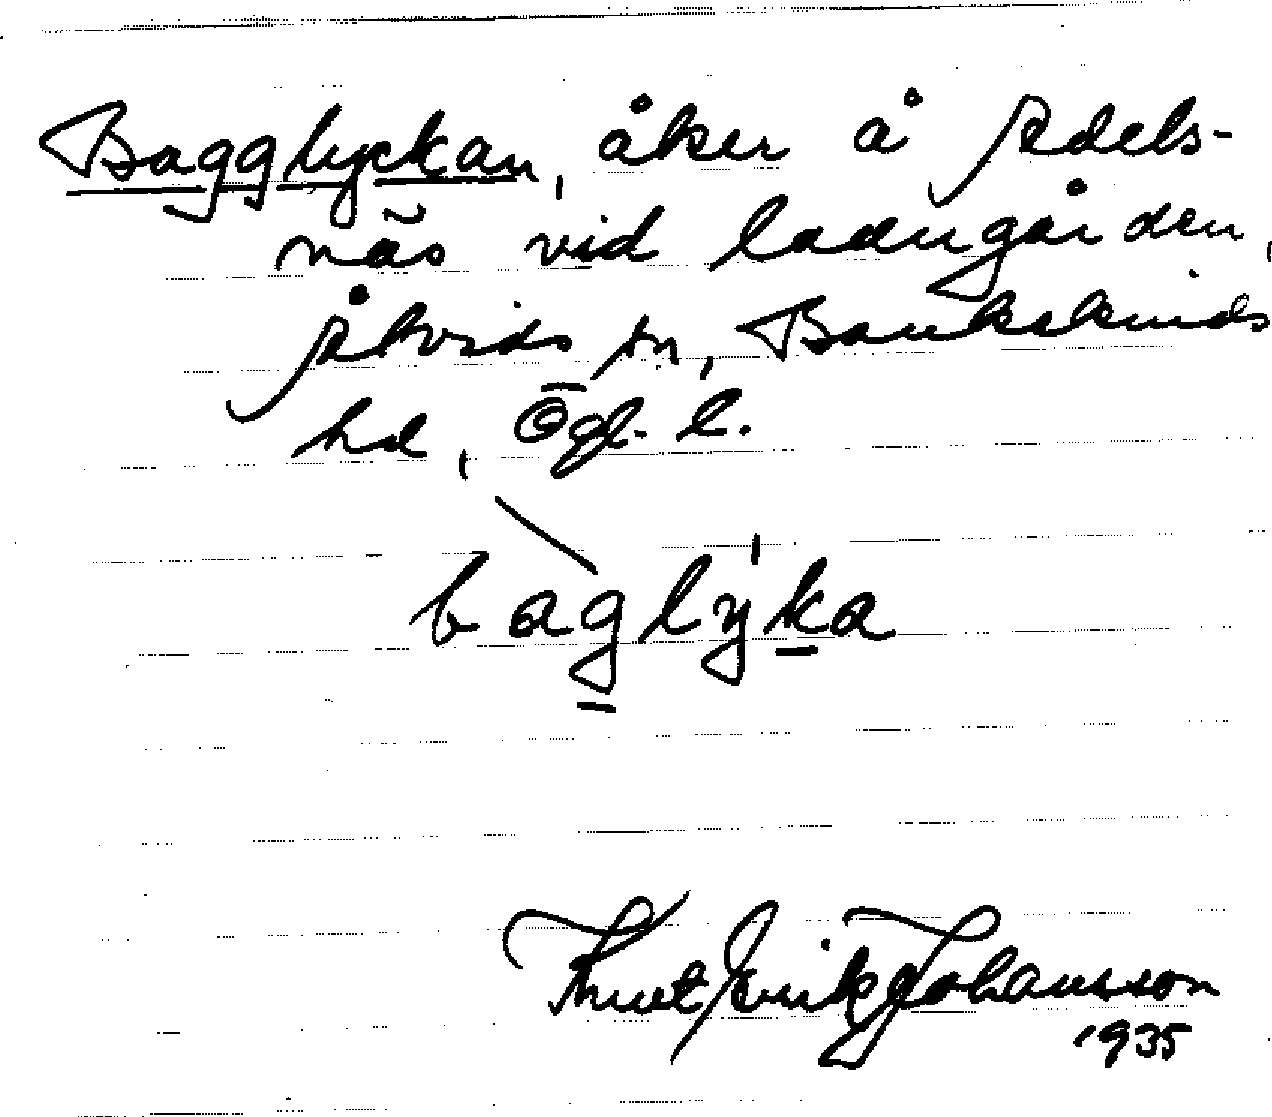 Bagglyckan, åker å Adels-
näs vid ladugården,
Åtvids sn, Bankekinds
hd, Ögl. l.
baglyka
Knut Erik Johansson
1935